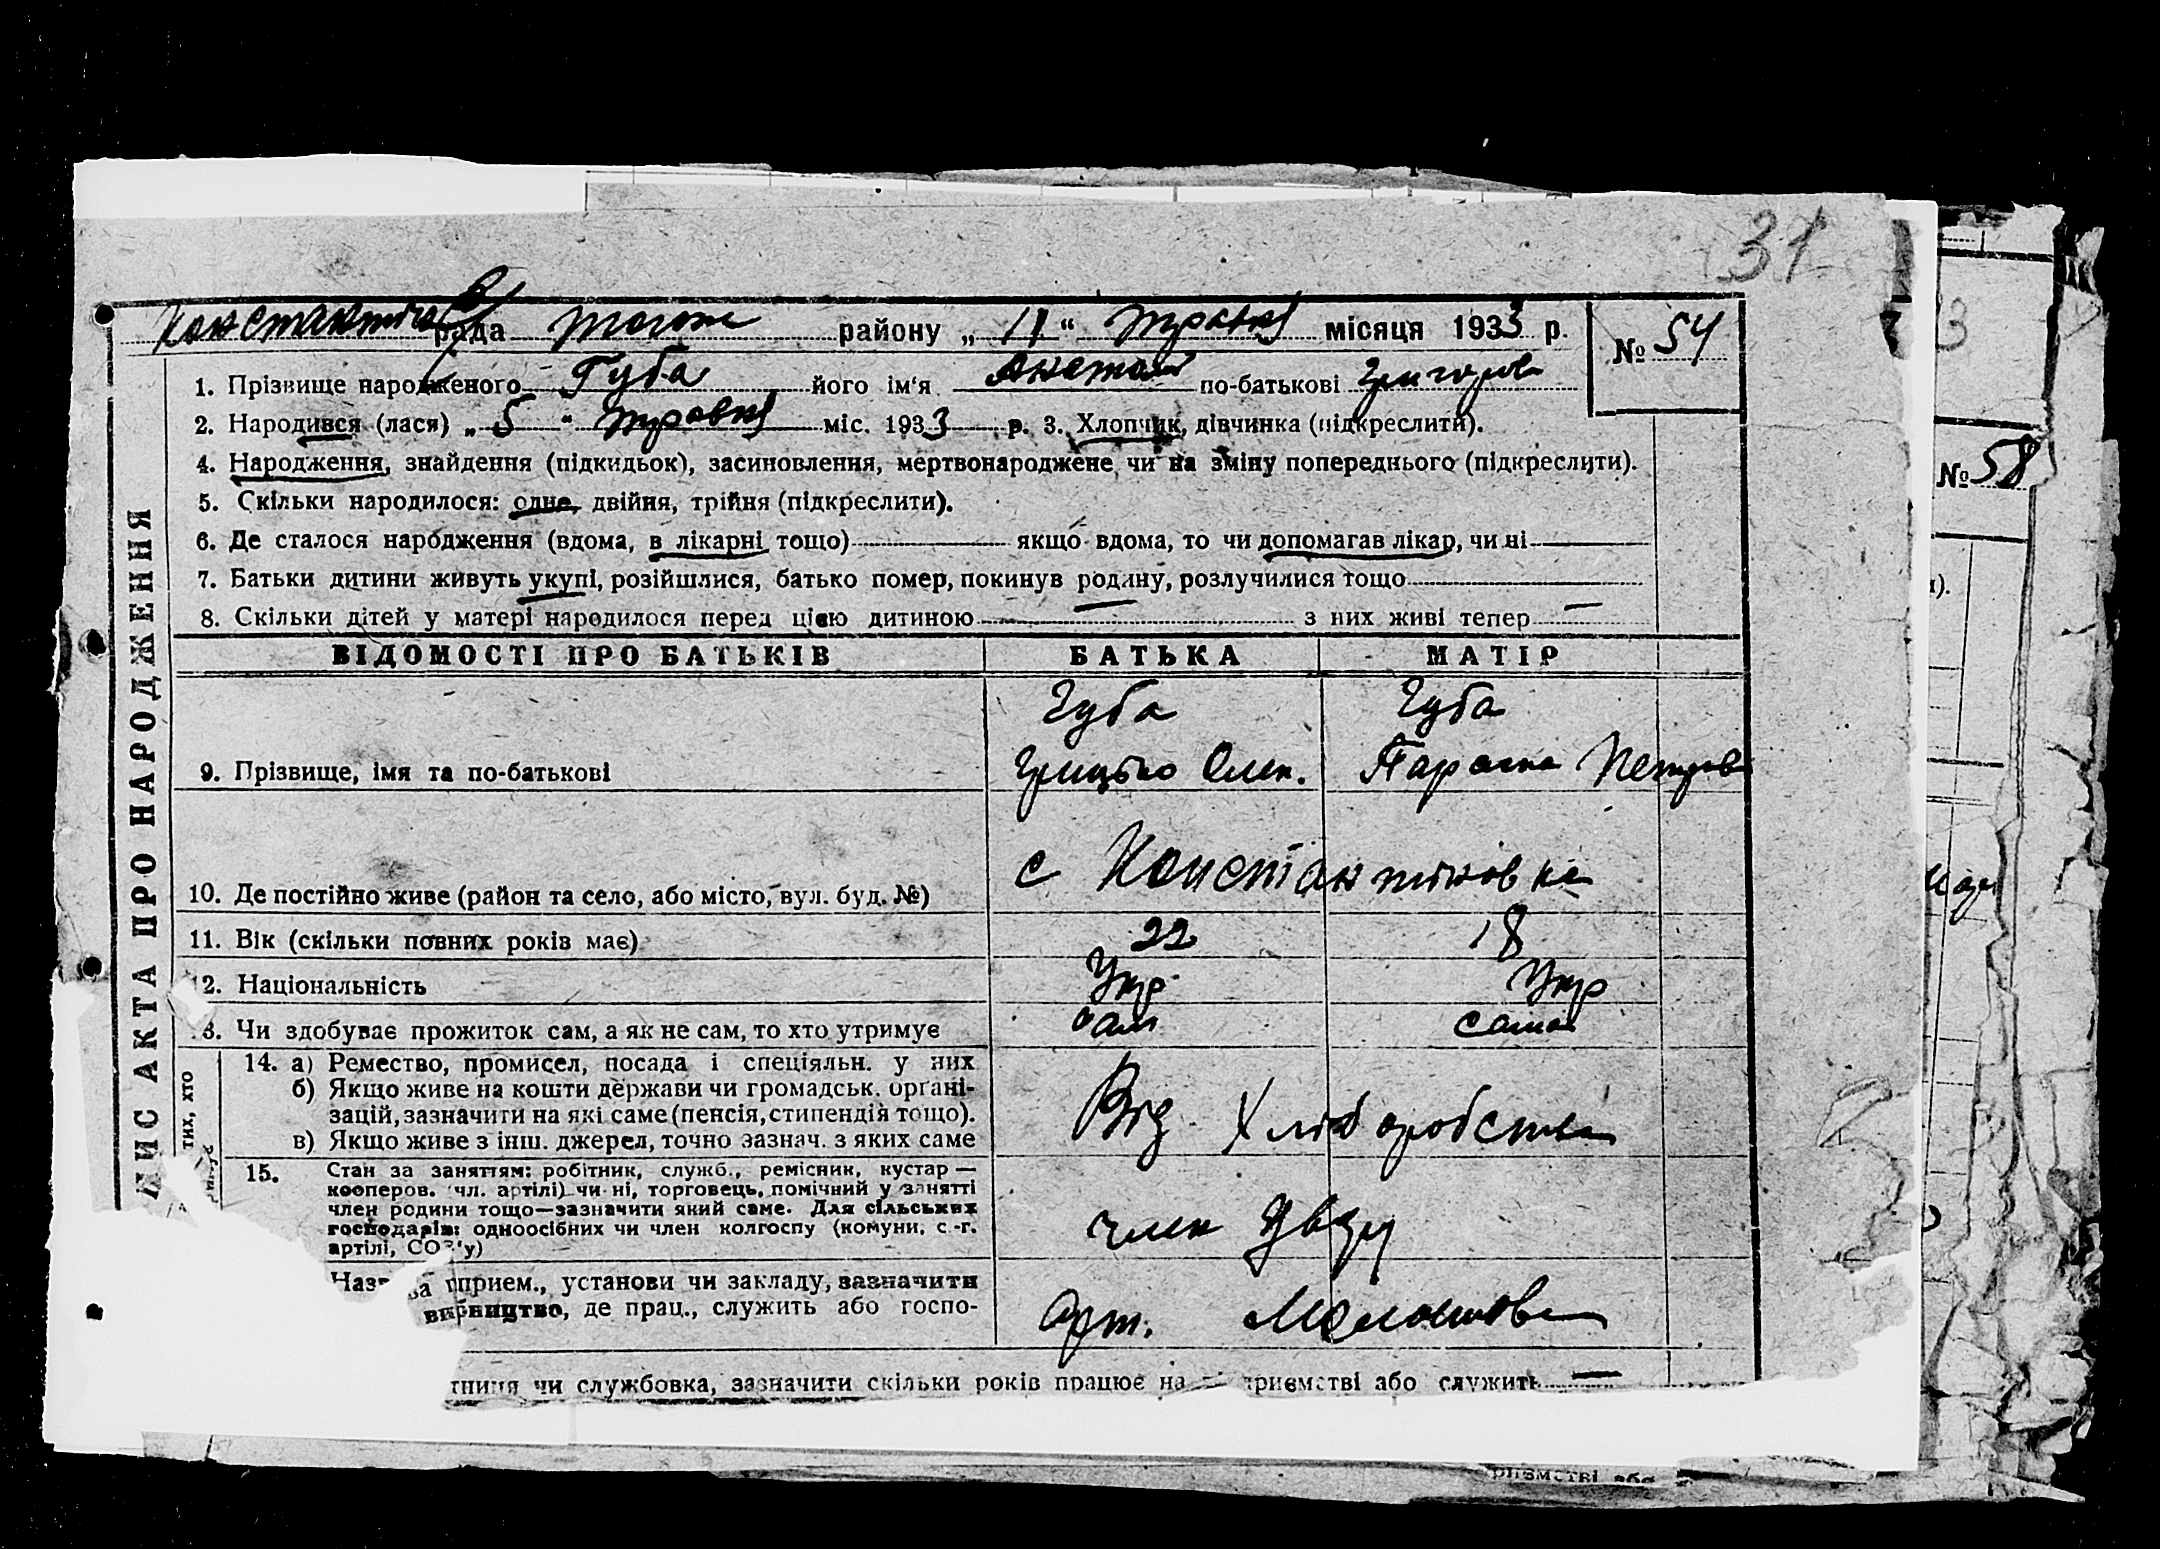 31
рада того ж району „ 11 “ травня місяця 1933 р. № 54
1. Прізвище народженого Губа його ім'я по-батькові Григоров
2. Народився (лася) „ 5 “ травня міс. 1933 р. 3. Хлопчик, дівчинка (підкреслити).
4. Народження, знайдення (підкидьок), засиновлення, мертвонароджене чи на зміну попереднього (підкреслити).
5. Скільки народилося: одне, двійня, трійня (підкреслити).
6. Де сталося народження (вдома, в лікарні тощо) якщо вдома, то чи допомагав лікар, чи ні
7. Батьки дитини живуть укупі, розійшлися, батько помер, покинув родину, розлучилися тощо
8. Скільки дітей у матері народилося перед цією дитиною — з них живі тепер —
ВІДОМОСТІ ПРО БАТЬКІВ БАТЬКА МАТІР
Губа Губа
9. Прізвище, імя та по-батькові Грицько Олек. Параска Петров
10. Де постійно живе (район та село, або місто, вул. буд. №) с Констан тінов ка
11. Вік (скільки повних років має) 22 18
12. Національність Укр Укр
3. Чи здобуває прожиток сам, а як не сам, то хто утримує сам сама
14. а) Ремество, промисел, посада і спеціяльн. у них
б) Якщо живе на кошти держави чи громадськ. органі-
зацій, зазначити на які саме (пенсія, стипендія тощо).
в) Якщо живе з інш. джерел, точно зазнач. з яких саме
Від Хліборобства
15. Стан за заняттям: робітник, служб., ремісник, кустар —
кооперов. (чл. артілі) чи ні, торговець, помічний у занятті
член родини тощо—зазначити який саме. Для сільських
господарів: одноосібних чи член колгоспу (комуни, с.-г.
артілі, СОЗ'у)
член
прием., установи чи закладу, зазначити
вирництво, де прац., служить або госпо-
Арт.
чи службовка, зазначити скільки років працює на приємстві або служить —
ПИС АКТА ПРО НАРОДЖЕННЯ
тих, хто
№ 58